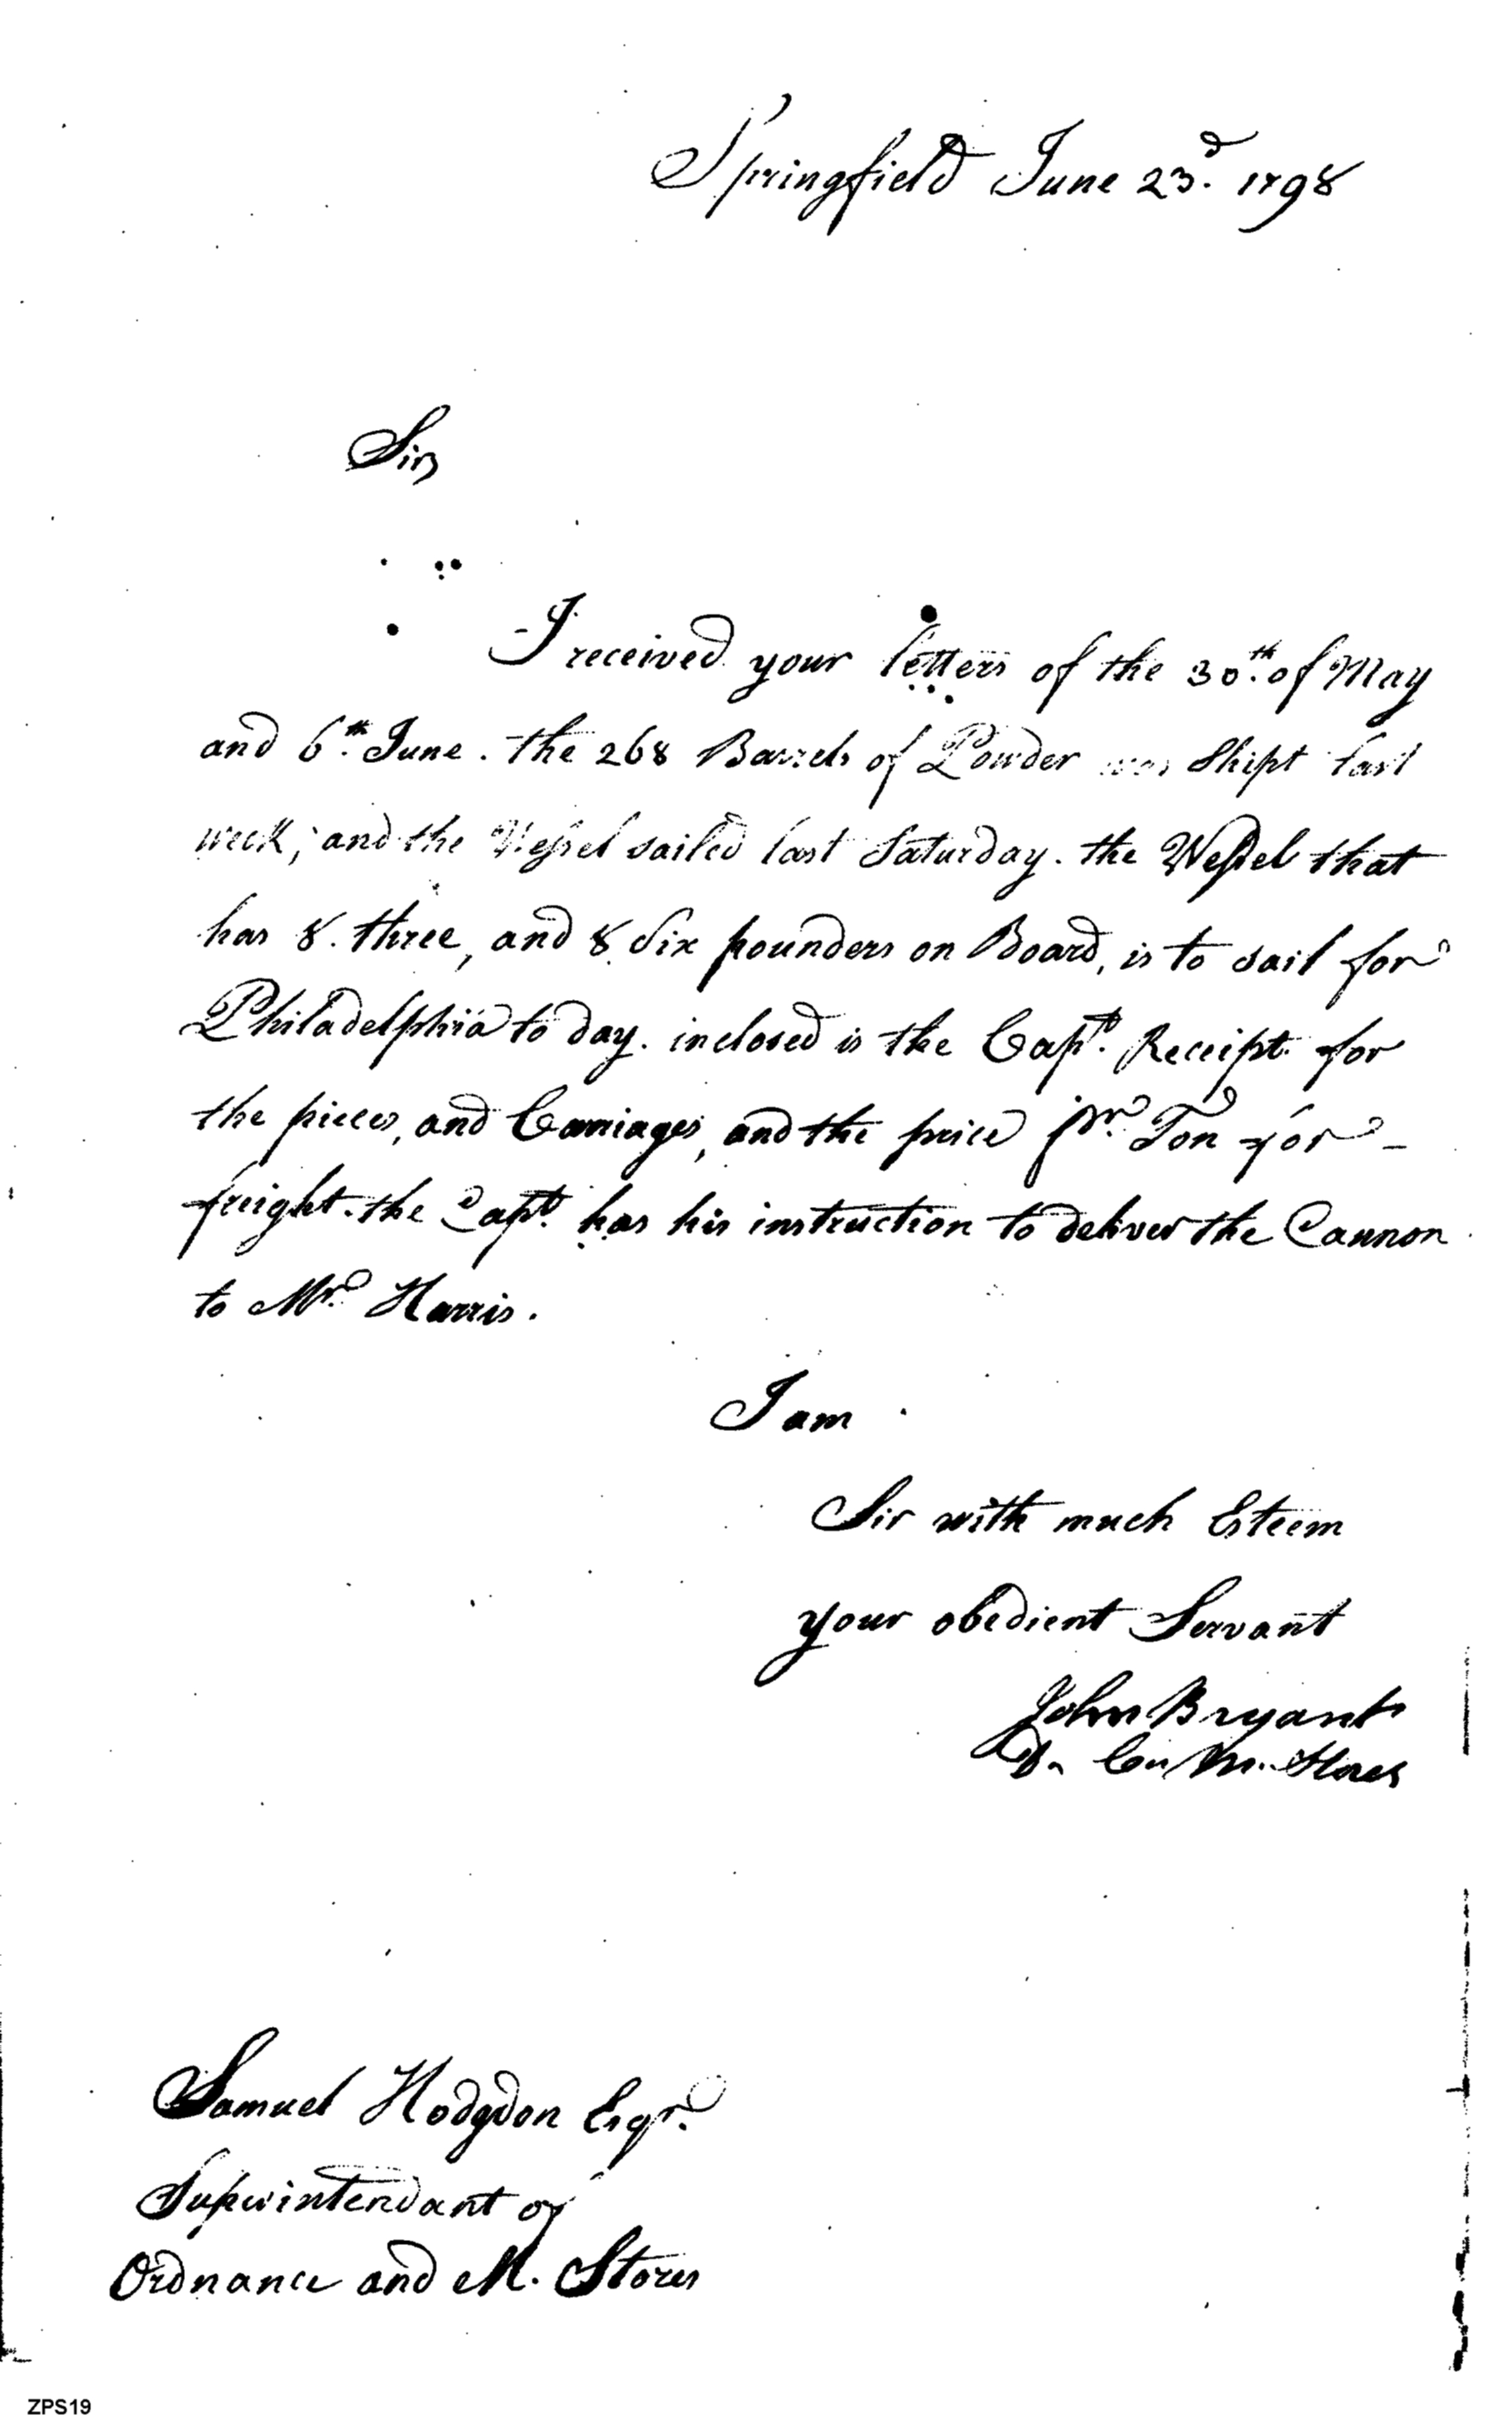 Springfield June 23.d 1798
Sir,
I received your letters of the 30.th of May
and 6.th June. the 268 Barrels of Powder was Shipt last
week; and the Vessel sailed last Saturday. the Wessel that
has 8. three, and 8. Six pounders on Board, is to sail for
Philadelphia to day. inclosed is the Capt. Receipt for
the pieces, and Carriages, and the price pr. Ton for -
freight. the Capt. has his instruction to deliver the Cannon
to Mr. Harris.
I am
Sir with much Esteem
your obedient Servant
John Bryant
D. M. Stores
Samuel Hodgdon Esqr.
Superintendant of
Ordnance and M. Stores
ZPS19